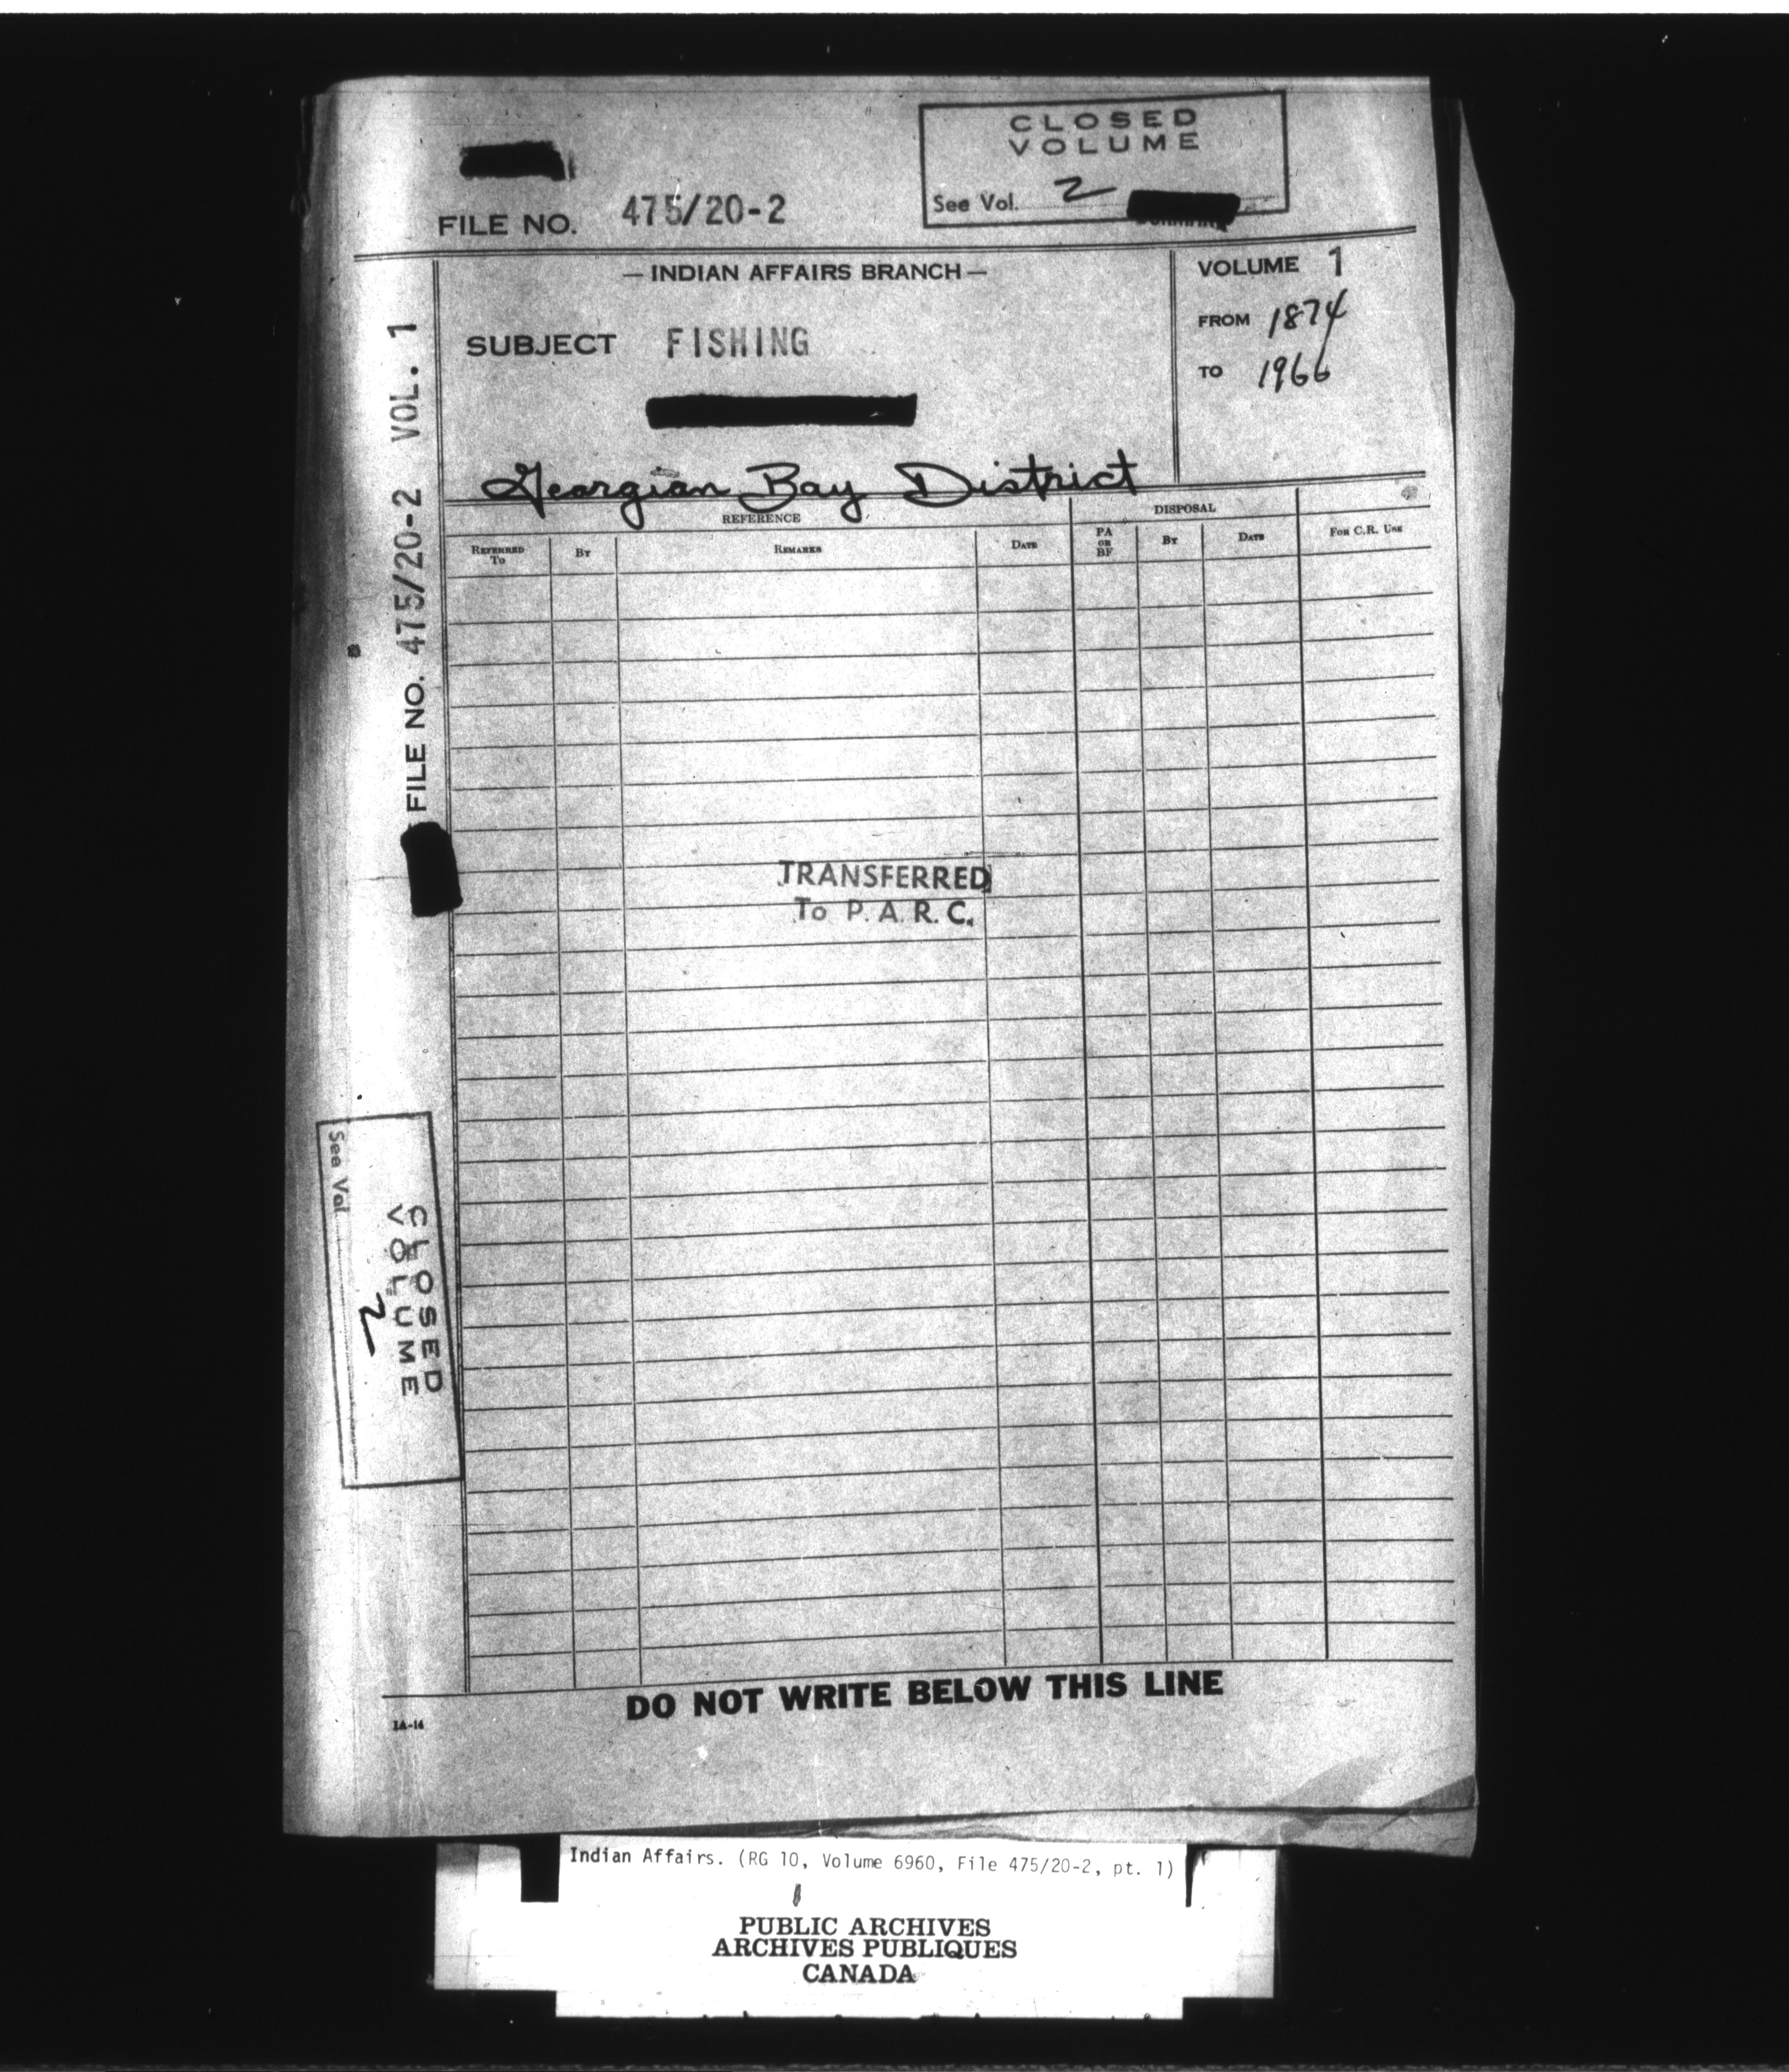 CLOSED
VOLUME
See Vol. 2
FILE NO. 475/20-2
— INDIAN AFFAIRS BRANCH —
VOLUME 1
FROM 1874
TO 1966
SUBJECT FISHING
Georgian Bay District
FILE NO. 475/20-2 VOL. 1
REFERENCE
DISPOSAL
REFERRED TO
BY
REMARKS
DATE
PA OR BF
BY
DATE
FOR C.R. USE
TRANSFERRED
To P.A.R.C.
CLOSED
VOLUME
See Vol. 2
DO NOT WRITE BELOW THIS LINE
IA-14
Indian Affairs. (RG 10, Volume 6960, File 475/20-2, pt. 1)
PUBLIC ARCHIVES
ARCHIVES PUBLIQUES
CANADA